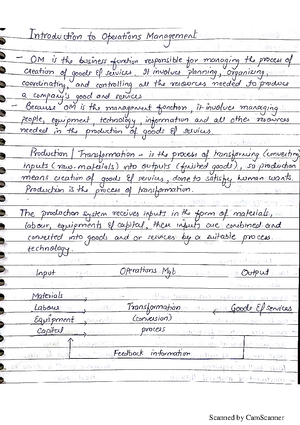 Introduction to Operations Management
- OM is the business function responsible for managing the process of
creation of goods & services. It involves planning, organizing,
coordinating, and controlling all the resources needed to produce
a company's good and services
Because OM is the management function, it involves managing
people, equipment, technology, information and all other resources
needed in the production of goods & services.
Production / Transformation - is the process of transforming (converting)
inputs (raw-materials) into outputs (finished goods), so production
means creation of goods & services, done to satisfy human wants.
Production is the process of transformation.
The production system receives inputs in the form of materials,
labour, equipments & capital, these inputs are combined and
converted into goods and or services by a suitable process
technology.
Input Operations Mgt Output
Materials
Labour Transformation Goods & services
Equipment (conversion)
Capital process
Feedback information
Scanned by CamScanner